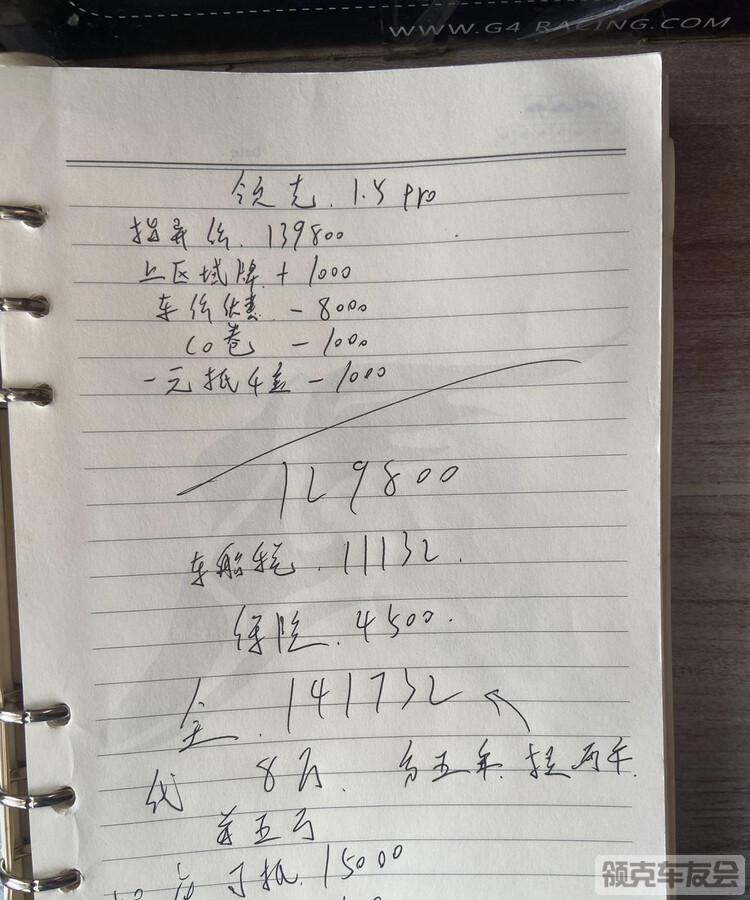 WWW.G4 RACING.COM
Date
领克 1.5 pro
指导价 139800
上区域牌 + 1000
车价优惠 - 8000
CO卷 - 1000
一元抵千金 - 1000
129800
车船税 11132
保险 4500
全 141732
代 8万 分五年 提两年
首五万
可抵 15000
领克车友会